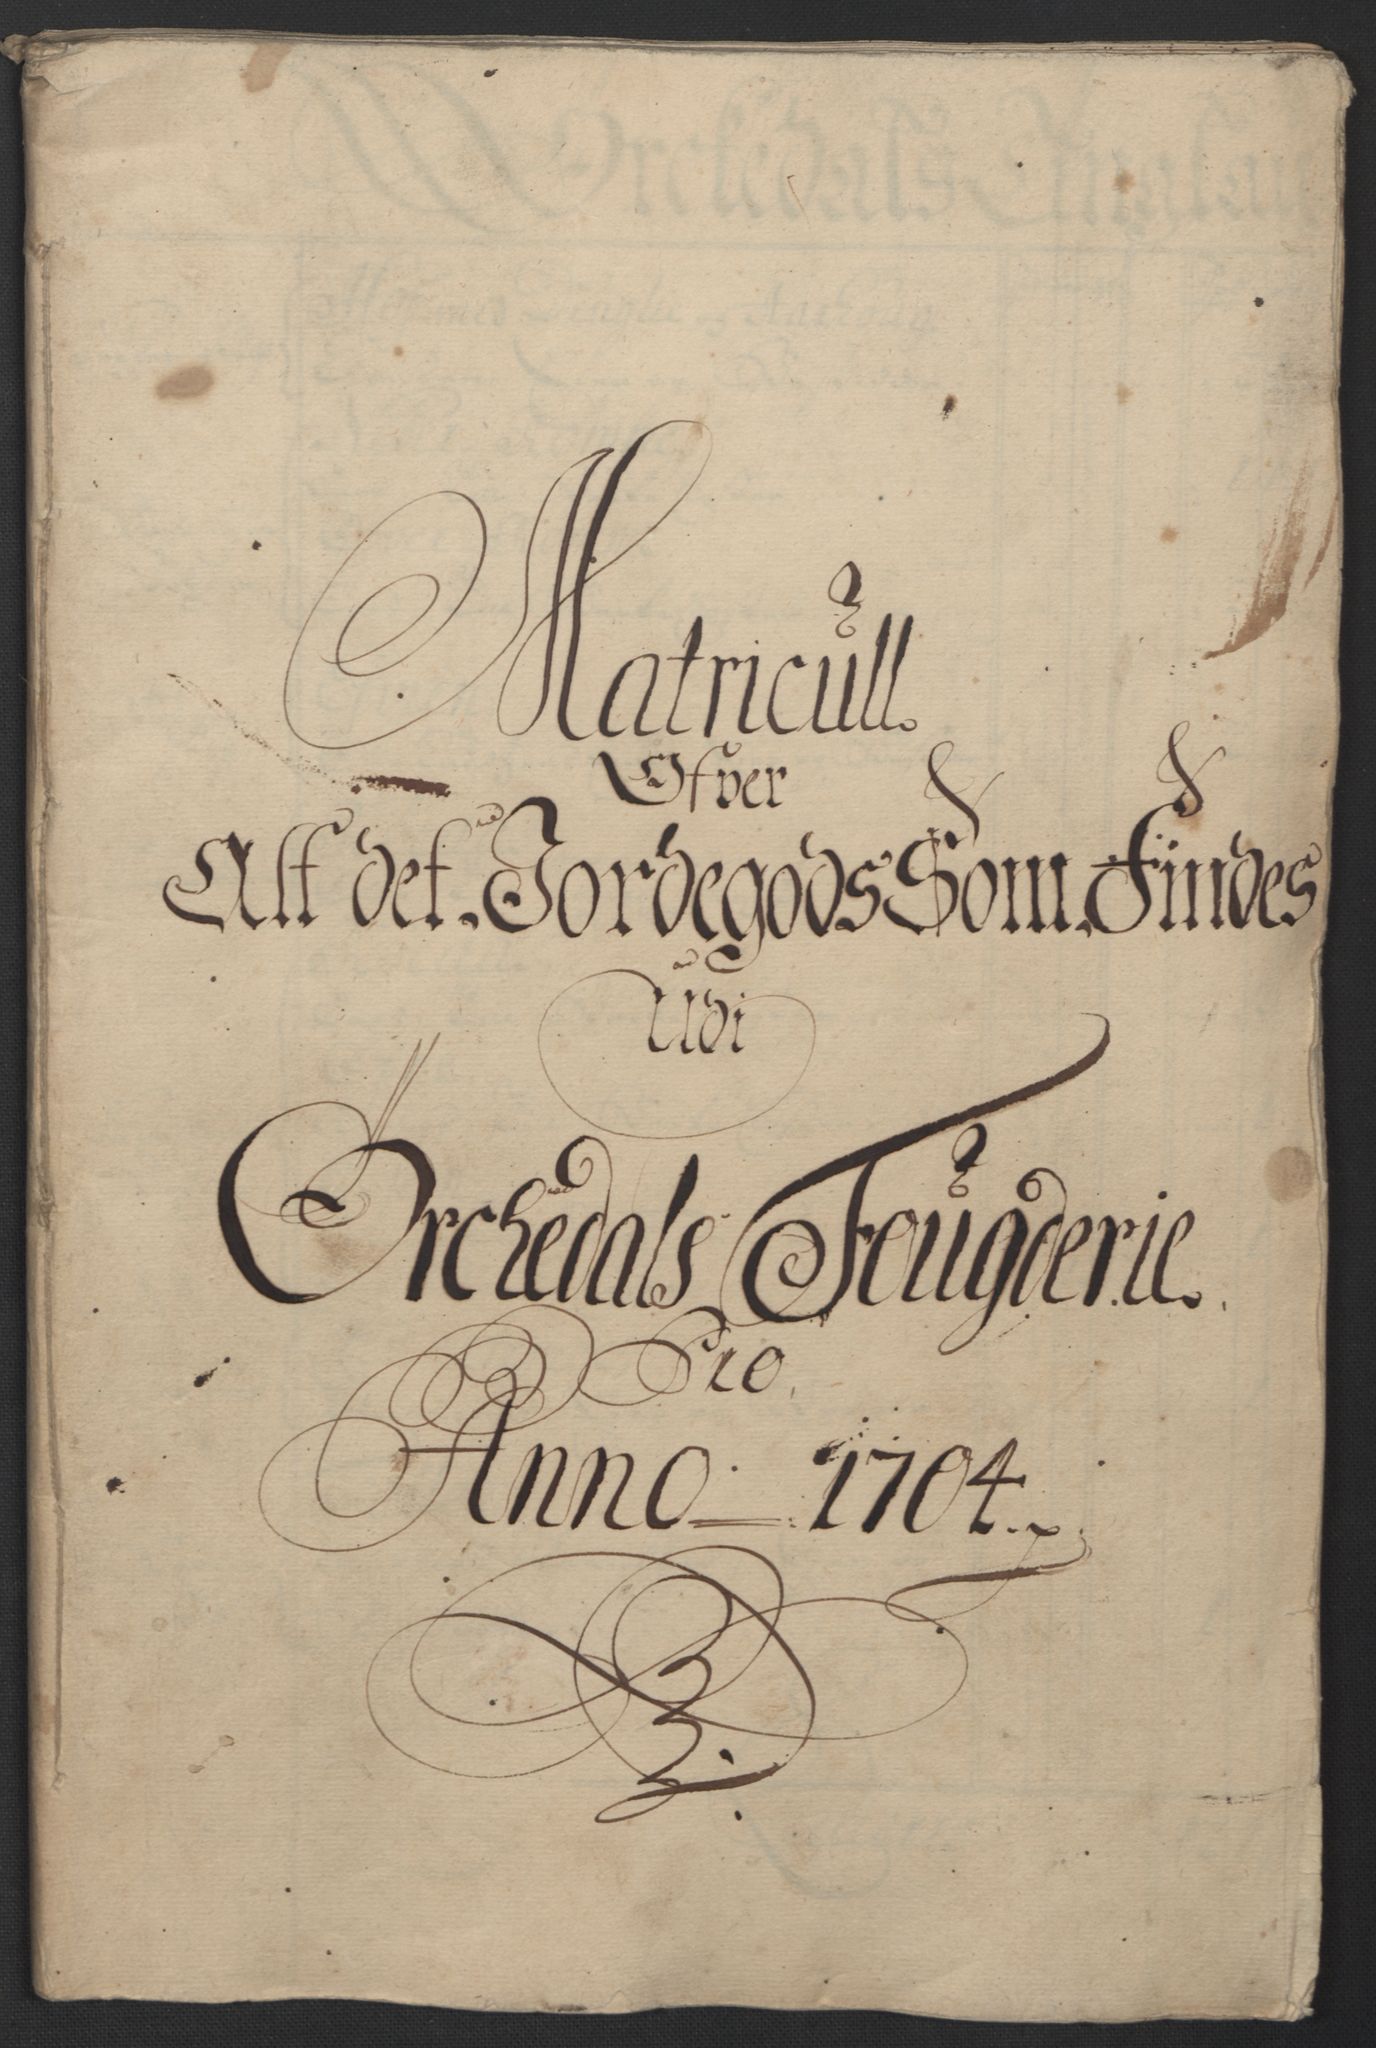 Matricull.
Ofver
Alt det Jordegods Som Findes
Udi
Orchedals Fougderie.
Pro
Anno 1704.